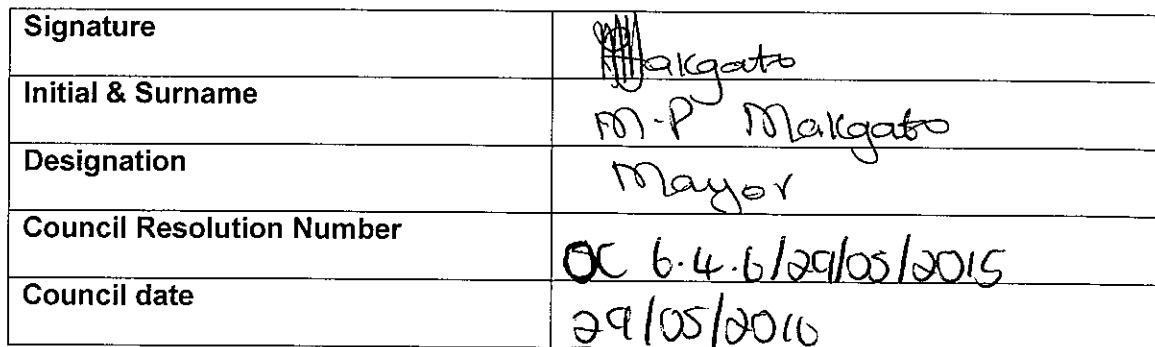 Signature Makgato
Initial & Surname M.P Makgato
Designation Mayor
Council Resolution Number OC 6.4.6/29/05/2015
Council date 29/05/2010